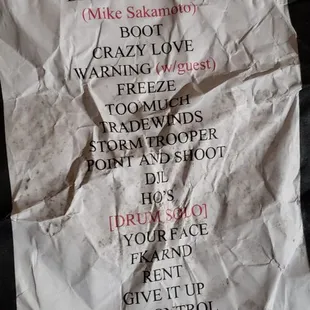 (Mike Sakamoto)
BOOT
CRAZY LOVE
WARNING (w/guest)
FREEZE
TOO MUCH
TRADEWINDS
STORM TROOPER
POINT AND SHOOT
HO'S
[DRUM SOLO]
YOUR FACE
FKARND
RENT
GIVE IT UP
CONTROL